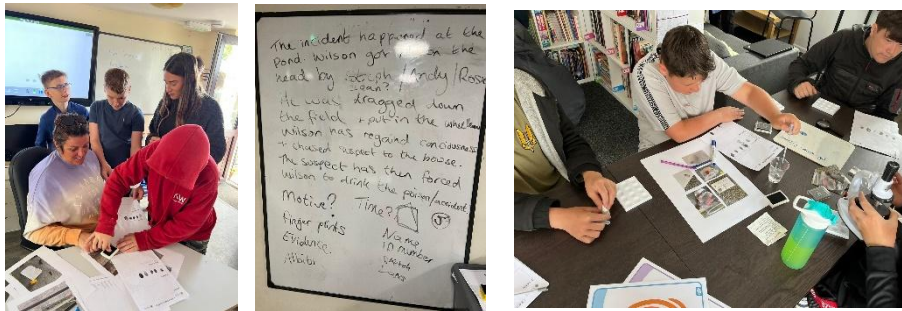 The incident happened at the
pond. Wilson got hit on the
head by Steph/Andy/Rosie
Sean?
He was dragged down
the field + put in the wheel
Wilson has regained conciousness
+ chased suspect to the house.
The suspect has then forced
wilson to drink the poison/accident
Motive? Time?
finger prints
Evidence
Alibi
Name
in number